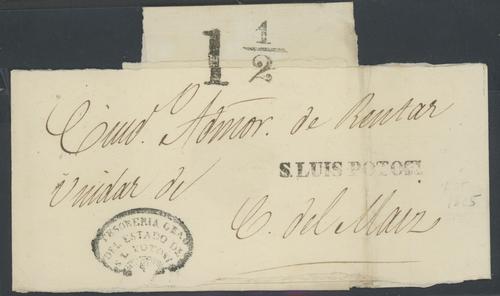 1 1/2
Ciud. Admor. de Rentas
S. LUIS POTOSI
Unidas de
C. del Maiz
TESORERIA GRAL
DEL ESTADO DE
S. L. POTOSI